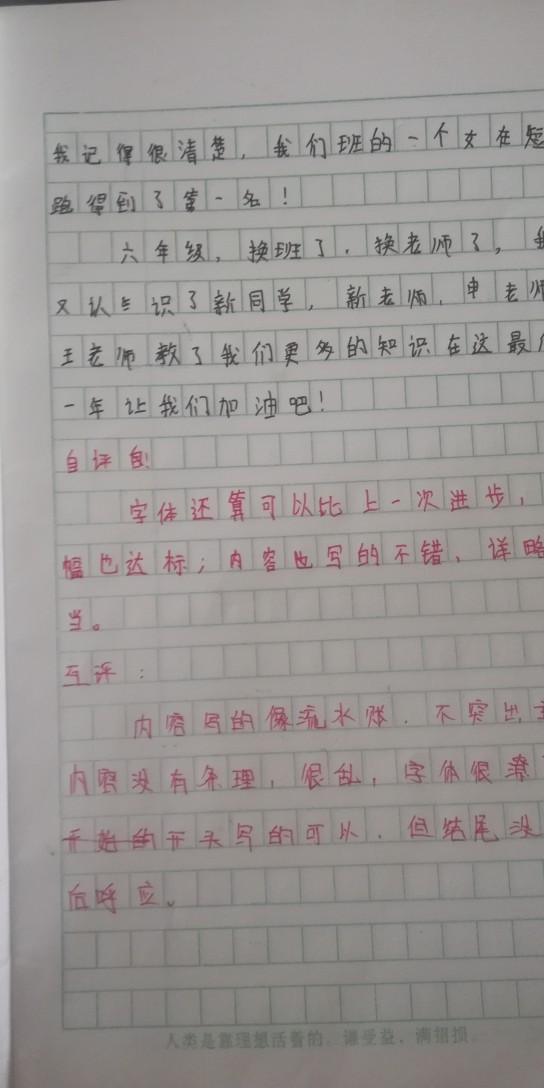 我记得很清楚，我们班的一个女在短
跑得到了第一名！
六年级，换班了，换老师了，我
又认识了新同学，新老师，申老师
王老师教了我们更多的知识在这最后
一年让我们加油吧！
自评：
字体还算可以比上一次进步，
幅也达标；内容也写的不错，详略
当。
互评：
内容写的像流水账，不突出主
内容没有条理，很乱，字体很潦
开始的开头写的可以，但结尾没
后呼应。
人类是靠理想活着的。谦受益，满招损。